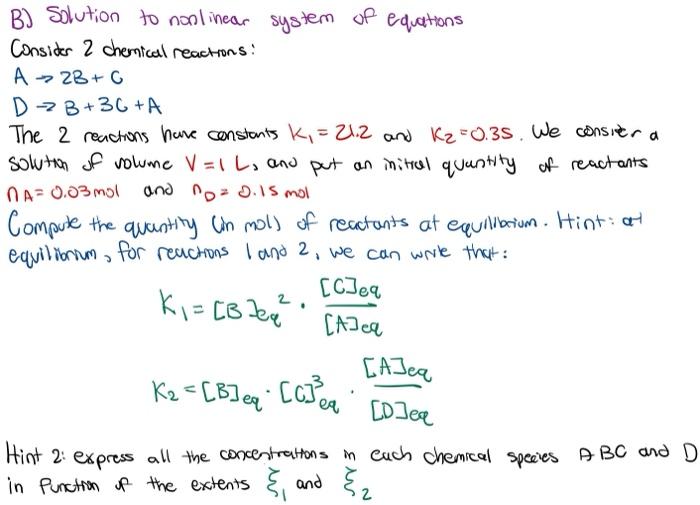 B) Solution to nonlinear system of equations
Consider 2 chemical reactions:
A → 2B + C
D → B + 3C + A
The 2 reactions have constants K₁ = 21.2 and K₂ = 0.35. We consider a
solution of volume V = 1 L, and put an initial quantity of reactants
nA = 0.03 mol and nD = 0.15 mol
Compute the quantity (in mol) of reactants at equilibrium. Hint: at
equilibrium, for reactions 1 and 2, we can write that:
K₁ = [B]eq² · [C]eq / [A]eq
K₂ = [B]eq · [C]³eq · [A]eq / [D]eq
Hint 2: express all the concentrations in each chemical species A BC and D
in function of the extents ξ₁ and ξ₂